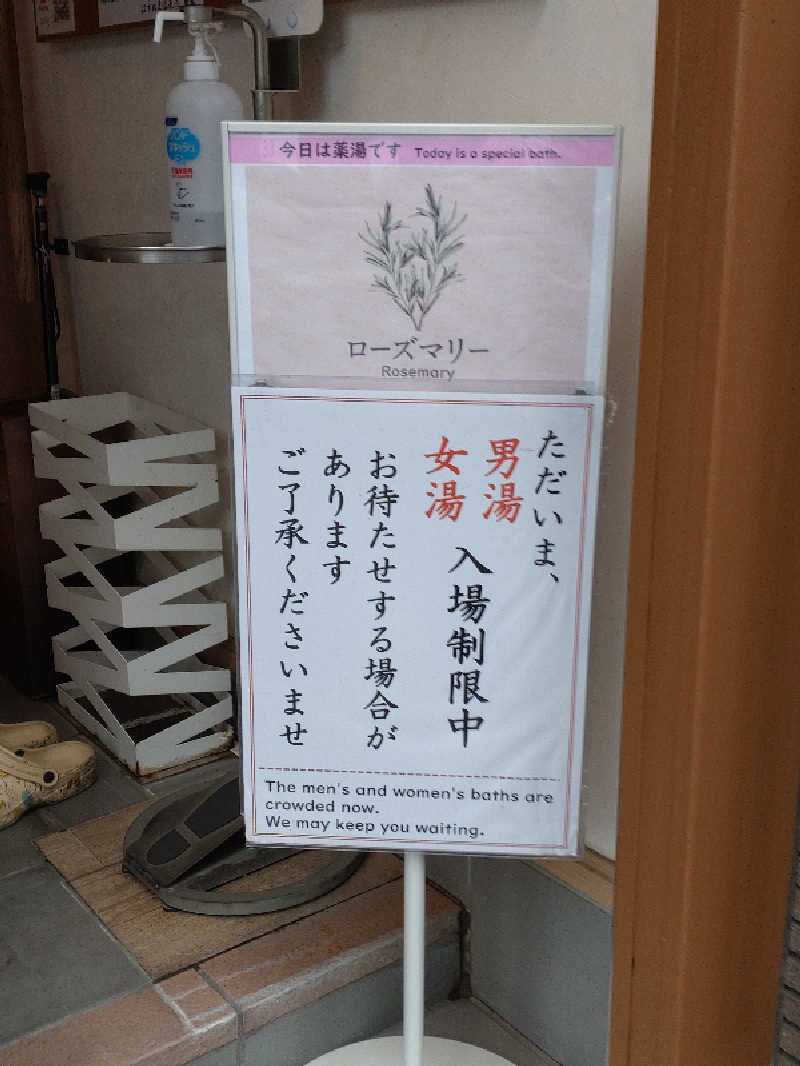 今日は薬湯です Today is a special bath.
ローズマリー
Rosemary
ただいま、
男湯
女湯
入場制限中
お待たせする場合が
あります
ご了承くださいませ
The men's and women's baths are
crowded now.
We may keep you waiting.